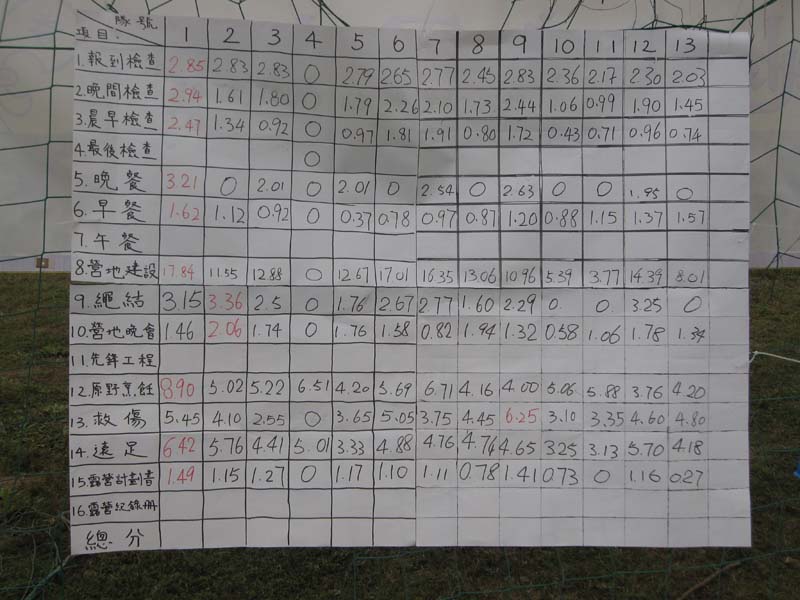 隊號
項目: 1 2 3 4 5 6 7 8 9 10 11 12 13
1.報到檢查 2.85 2.83 2.83 0 2.79 2.65 2.77 2.45 2.83 2.36 2.17 2.30 2.03
2.晚間檢查 2.94 1.61 1.80 0 1.79 2.26 2.10 1.73 2.44 1.06 0.99 1.90 1.45
3.晨早檢查 2.47 1.34 0.92 0 0.97 1.81 1.91 0.80 1.72 0.43 0.71 0.96 0.74
4.最後檢查 0
5.晚餐 3.21 0 2.01 0 2.01 0 2.54 0 2.63 0 0 1.95 0
6.早餐 1.62 1.12 0.92 0 0.37 0.78 0.97 0.87 1.20 0.88 1.15 1.37 1.57
7.午餐
8.營地建設 17.84 11.55 12.88 0 12.67 17.01 16.35 13.06 10.96 5.39 3.77 14.39 8.01
9.繩結 3.15 3.36 2.5 0 1.76 2.67 2.77 1.60 2.29 0. 0. 3.25 0
10.營地晚會 1.46 2.06 1.74 0 1.76 1.58 0.82 1.94 1.32 0.58 1.06 1.78 1.34
11.先鋒工程
12.原野烹飪 8.90 5.02 5.22 6.51 4.20 5.69 6.71 4.16 4.00 5.06 5.88 3.76 4.20
13.救傷 5.45 4.10 2.55 0 3.65 5.05 3.75 4.45 6.25 3.10 3.35 4.60 4.80
14.遠足 6.42 5.76 4.41 5.01 3.33 4.88 4.76 4.74 4.65 3.25 3.13 5.70 4.18
15.露營計劃書 1.49 1.15 1.27 0 1.17 1.10 1.11 0.78 1.41 0.73 0 1.16 0.27
16.露營紀錄冊
總分